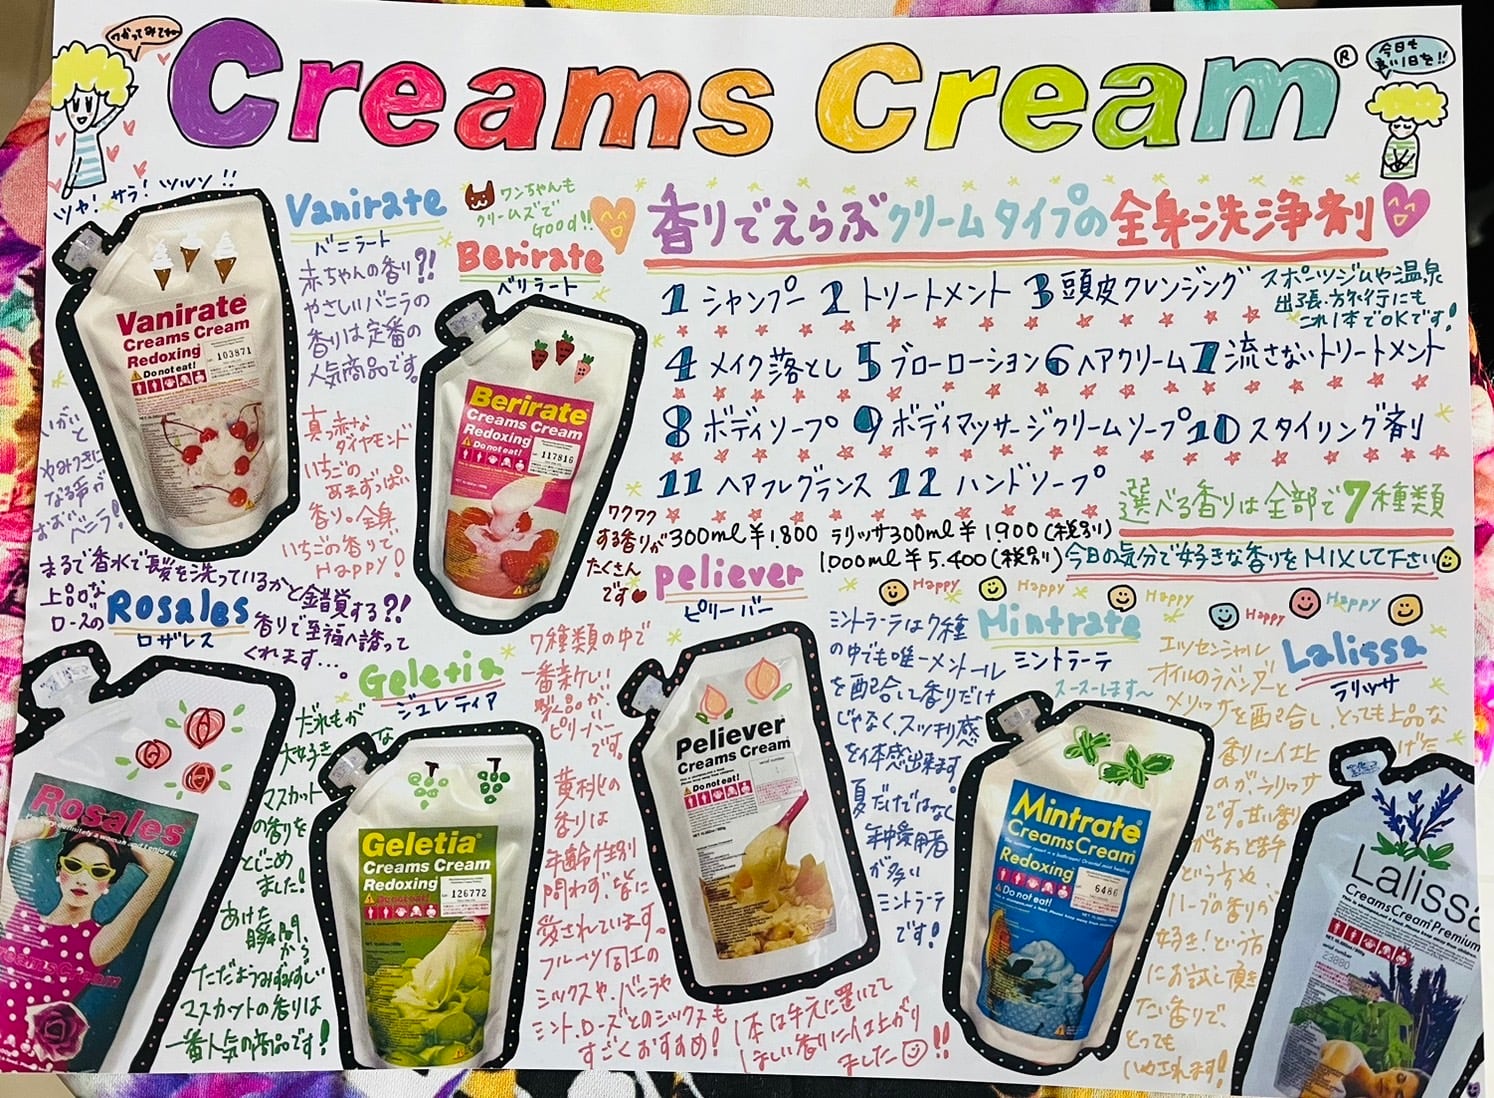 つかってみてね
Creams Cream®
今日も
良い1日を!!
ツヤ! サラ! ツルン!!
Vanirate
バニラート
赤ちゃんの香り?!
やさしいバニラの
香りは定番の
人気商品です。
ワンちゃんも
クリームズで
Good!!
Berirate
ベリラート
真っ赤な
ダイヤモンド
いちごの
あまずっぱい
香り。全身
いちごの香りで
Happy!
香りでえらぶクリームタイプの全身洗浄剤
1 シャンプー 2 トリートメント 3 頭皮クレンジング
スポーツジムや温泉
出張・旅行にも
これ1本でOKです!
4 メイク落とし 5 ブローローション 6 ヘアクリーム 7 流さないトリートメント
8 ボディソープ 9 ボディマッサージクリームソープ 10 スタイリング剤
11 ヘアフレグランス 12 ハンドソープ
選べる香りは全部で7種類
300ml ¥1.800 ラリッサ300ml ¥1900(税別)
1.000ml ¥5.400(税別)
今日の気分で好きな香りをMIXして下さい
ワクワク
する香りが
たくさん
です
Vanirate
Creams Cream
Redoxing
103871
Do not eat!
Berirate
Creams Cream
Redoxing
Do not eat!
117816
まるで香水で髪を洗っているかと錯覚する?!
上品な
ローズの
Rosales
ロザレス
香りで至福へ誘って
くれます…。
Rosales
Creams Cream
Geletia
ジュレティア
だれもが
大好きな
マスカット
の香りを
とじこめ
ました!
あけた
瞬間から
ただようみずみずしい
マスカットの香りは
一番人気の商品です!
Geletia
Creams Cream
Redoxing
Do not eat!
126772
peliever
ピリーバー
7種類の中で
一番新しい
製品が、
ピリーバー
です。
黄桃の
香りは
年齢性別
問わず、皆に
愛されています。
フルーツ同士の
ミックスや、バニラや
ミント、ローズとのミックスも
すごくおすすめ!
1本は手元に置いて
ほしい香りに仕上がり
ました!!
Peliever
Creams Cream
Do not eat!
Happy
Happy
Happy
Happy
Mintrate
ミントラーテ
スースーします〜
ミントラーテは7種
の中でも唯一メントール
を配合して香りだけ
じゃなく、スッキリ感
を体感出来ます
夏だけではなく
年中愛用者
が多い
ミントラーテ
です!
Mintrate
Creams Cream
Redoxing
Do not eat!
6486
Lalissa
ラリッサ
エッセンシャル
オイルのラベンダーと
メリッサを配合し、とっても上品な
香りに仕上げた
のが、ラリッサ
です。甘い香り
がちょと苦手
という方や、
ハーブの香りが
好き!という方
にお試し頂き
たい香りで、
とっても
いやされます!
Lalissa
Creams Cream Premium
23880